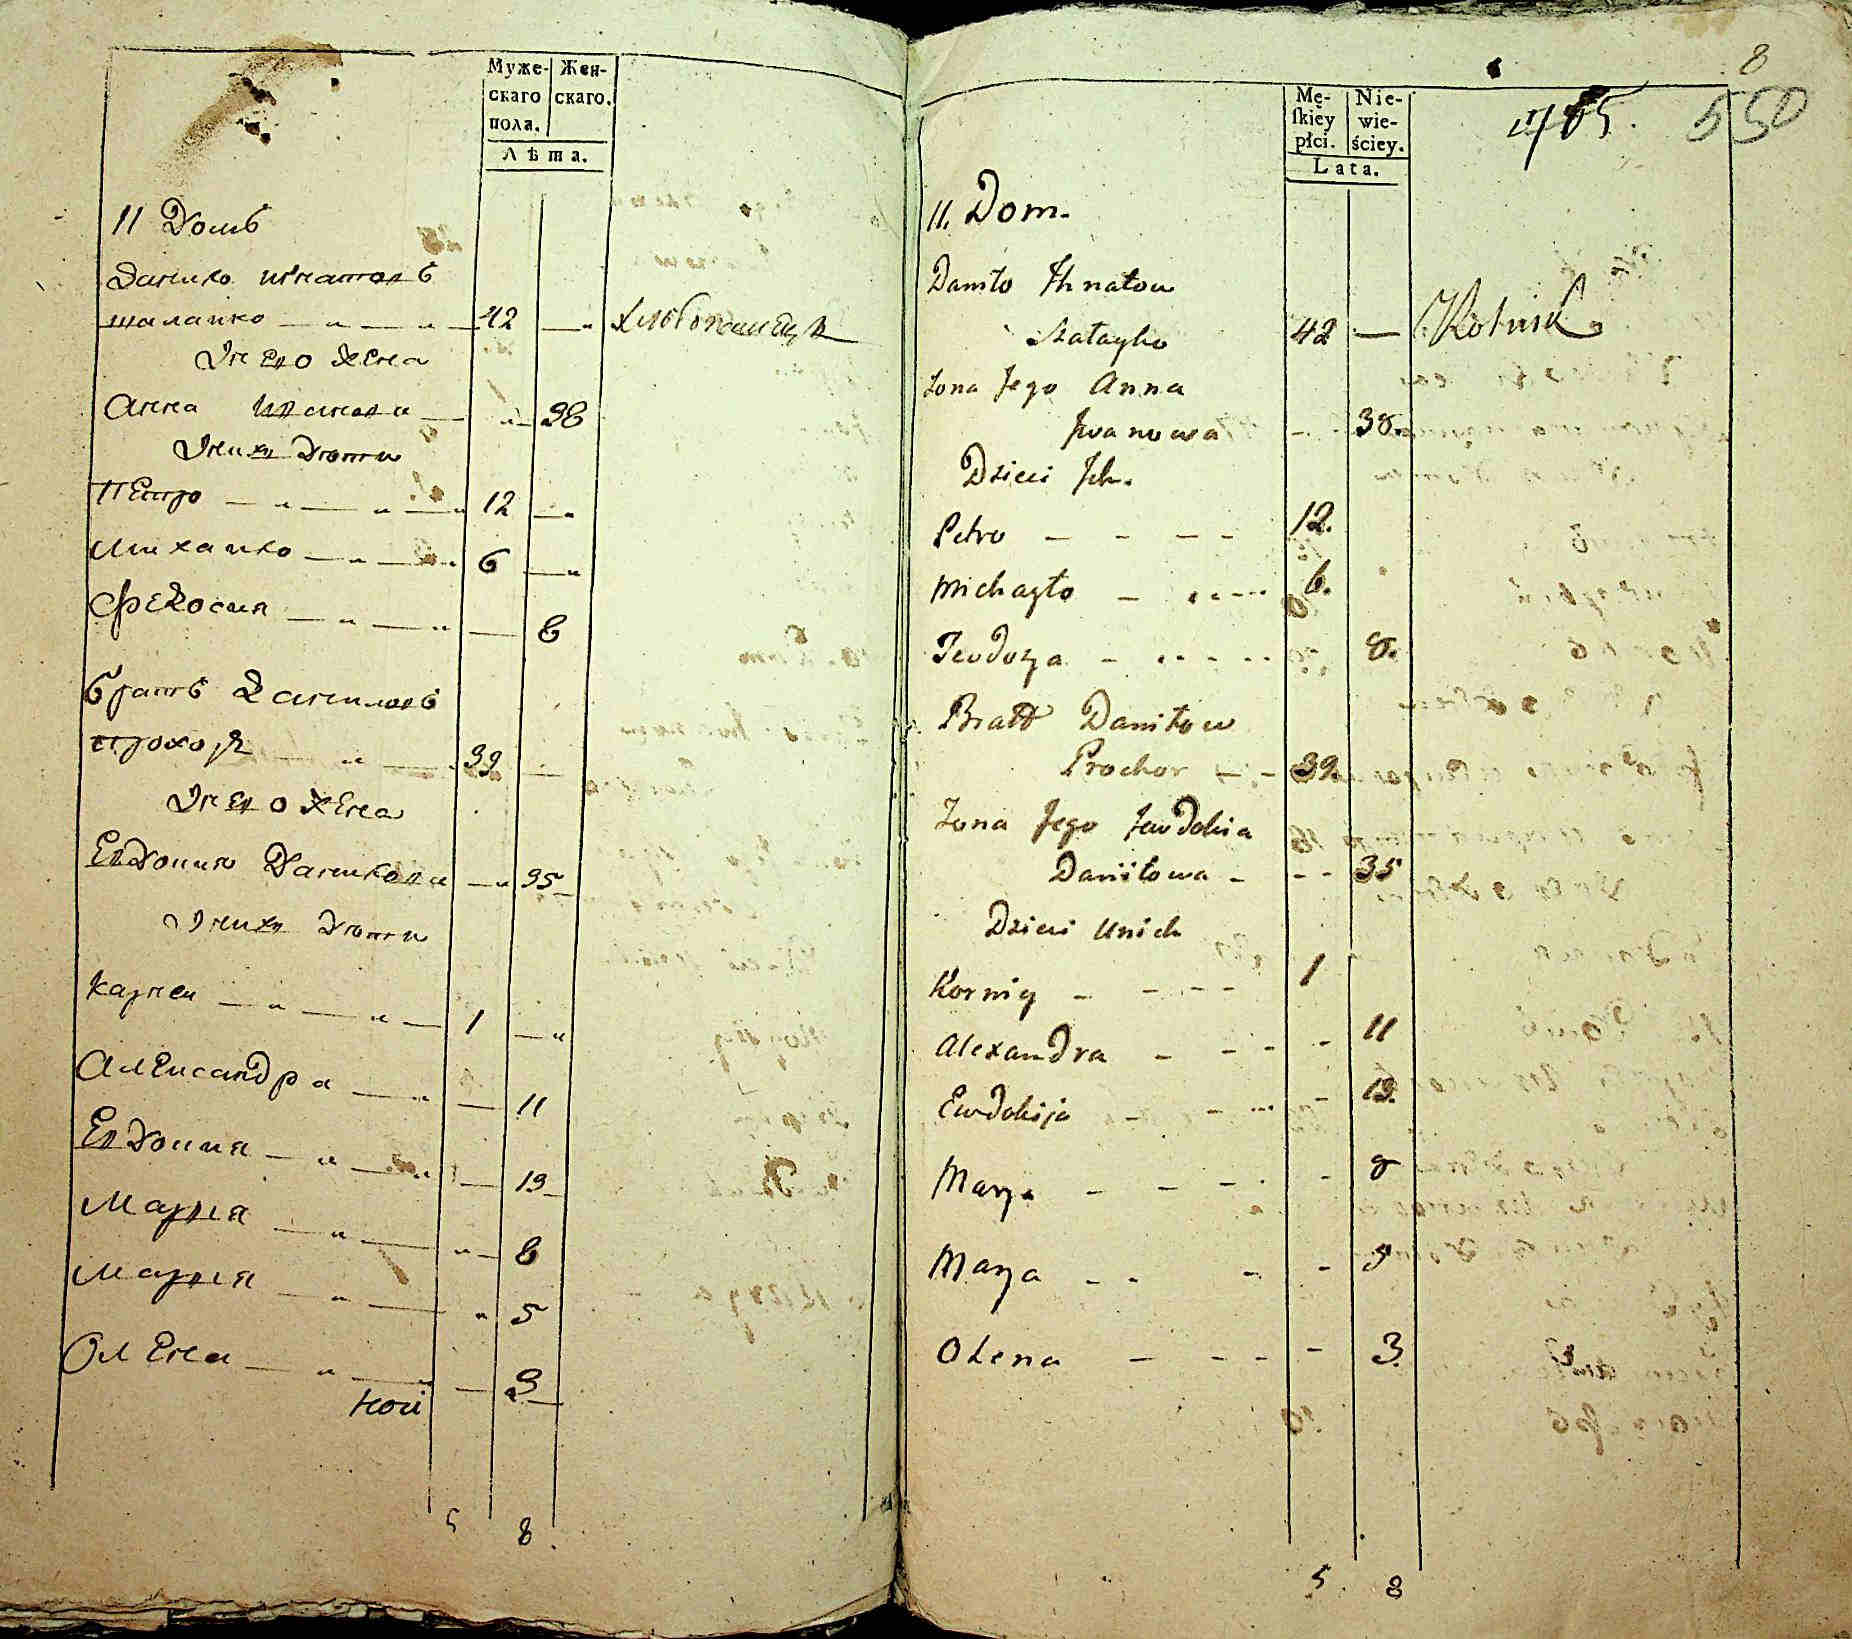 Муже-
скаго
пола.
Жен-
скаго.
Лѣта.
11 Домъ
Данило игнатовъ
шалаико 42 хлѣбопашецъ
Унево жена
Анна Иванова 38
Униху дѣти
Петро 12
Михаило 6
Федосия 8
братъ даниловъ
прохоръ 39
Унево жена
Евдокия Данилова 35
Униху дѣти
Карнеи 1
Александра 11
Евдокия 13
Марья 8
Марья 5
Олена 3
5 8
8
Mę-
ſkiey
płci.
Nie-
wie-
ściey.
Lata.
550
11. Dom.
Daniło Ihnatow
Szałayko 42 Rolnik
Zona Jego Anna
Jwanowa 38.
Dzieci Jch.
Petro 12.
Michayło 6.
Teodozya 8.
Bratt Daniłow
Prochor 39.
Zona Jego Jewdokia
Daniiłowa 35
Dzieci Unich
Korniy 1
Alexandra 11
Ewdokija 13.
Marya 8
Marya 5
Olena 3.
5 8